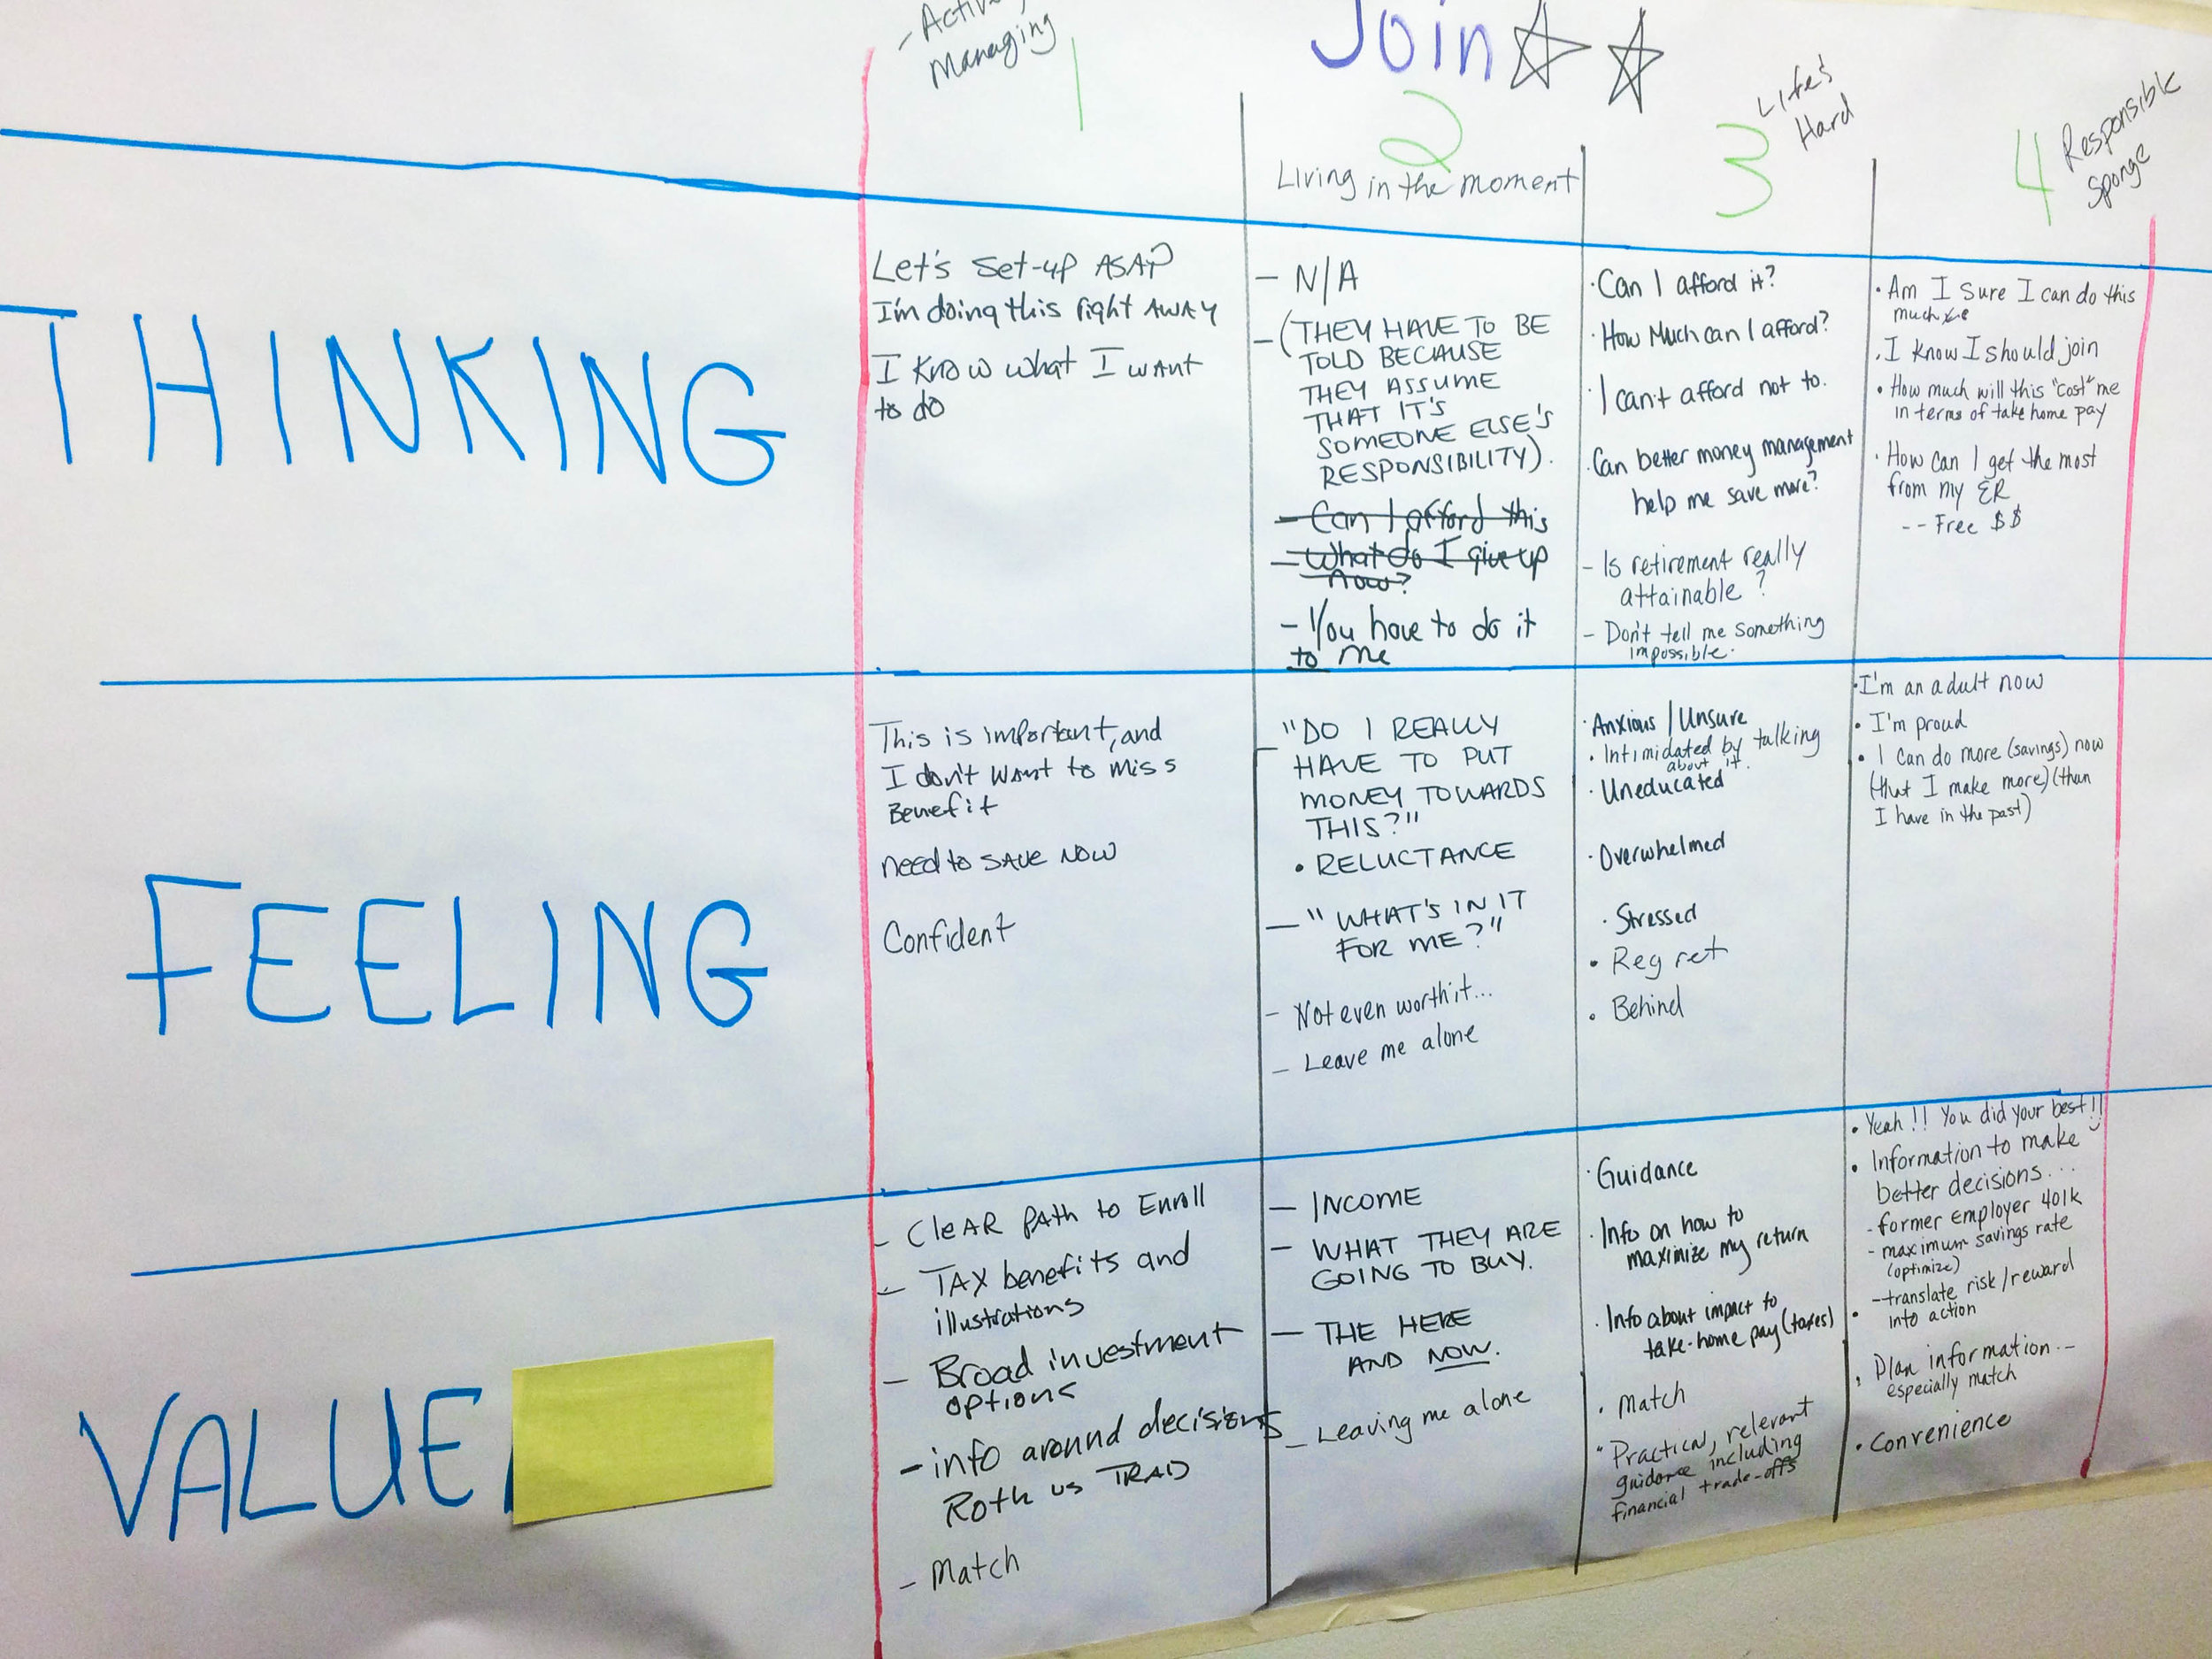 Managing
1
Join
2
Living in the moment
3
Life's
Hard
4
Responsible
Sponge
THINKING
Let's set-up ASAP
I'm doing this right AWAY
I know what I want
to do
- N/A
- (THEY HAVE TO BE
TOLD BECAUSE
THEY ASSUME
THAT IT'S
SOMEONE ELSE'S
RESPONSIBILITY).
- Can I afford this
- What do I give up
now?
- You have to do it
to me
· Can I afford it?
· How Much can I afford?
· I can't afford not to.
· Can better money management
help me save more?
- Is retirement really
attainable?
- Don't tell me something
impossible.
· Am I sure I can do this
much
· I know I should join
· How much will this "cost" me
in terms of take home pay
· How can I get the most
from my ER
-- Free $$
FEELING
This is important, and
I don't want to miss
Benefit
need to SAVE NOW
Confident
- "DO I REALLY
HAVE TO PUT
MONEY TOWARDS
THIS?"
• RELUCTANCE
- "WHAT'S IN IT
FOR ME?"
- Not even worth it...
- Leave me alone
· Anxious / Unsure
· Intimidated by talking
about it.
· Uneducated
· Overwhelmed
· Stressed
· Regret
· Behind
· I'm an adult now
· I'm proud
· I can do more (savings) now
(that I make more) (than
I have in the past)
VALUE
- CleAR pAth to Enroll
- TAX benefits and
illustrations
- Broad investment
options
- info around decisions
Roth vs TRAD
- Match
- INCOME
- WHAT THEY ARE
GOING TO BUY.
- THE HERE
AND NOW.
- Leaving me alone
· Guidance
· Info on how to
maximize my return
· Info about impact to
take-home pay (taxes)
· Match
· Practical, relevant
guidance including
financial trade-offs
· Yeah!! You did your best!!
· Information to make
better decisions...
- former employer 401k
- maximum savings rate
(optimize)
- translate risk/reward
into action
· Plan information --
especially match
· Convenience